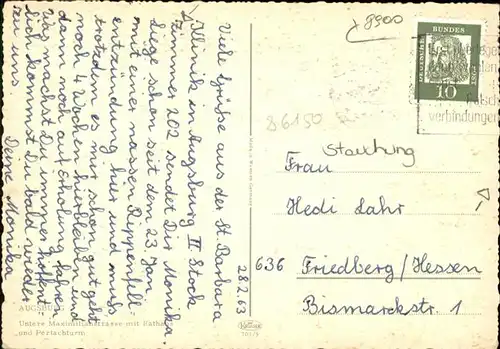 Viele Grüße aus der St. Barbara
Klinik in Augsburg II Stock
Zimmer 202 sendet Dir Monika
liege schon seit dem 23. Jan.
mit einer nassen Rippenfell-
entzündung hier und muss
trotzdem es mir schon gut geht
noch 4 Wochen hierbleiben und
dann noch auf Erholung fahren
was machst Du immer, hoffent-
lich kommst Du bald wieder
zu uns
Deine Monika
28.2.63
AUGSBURG
Untere Maximilianstrasse mit Rathaus
und Perlachturm
8900
86150
DEUTSCHE
BUNDES
10
verbindungen
Frau
Hedi Lahr
636 Friedberg/Hessen
Bismarckstr. 1